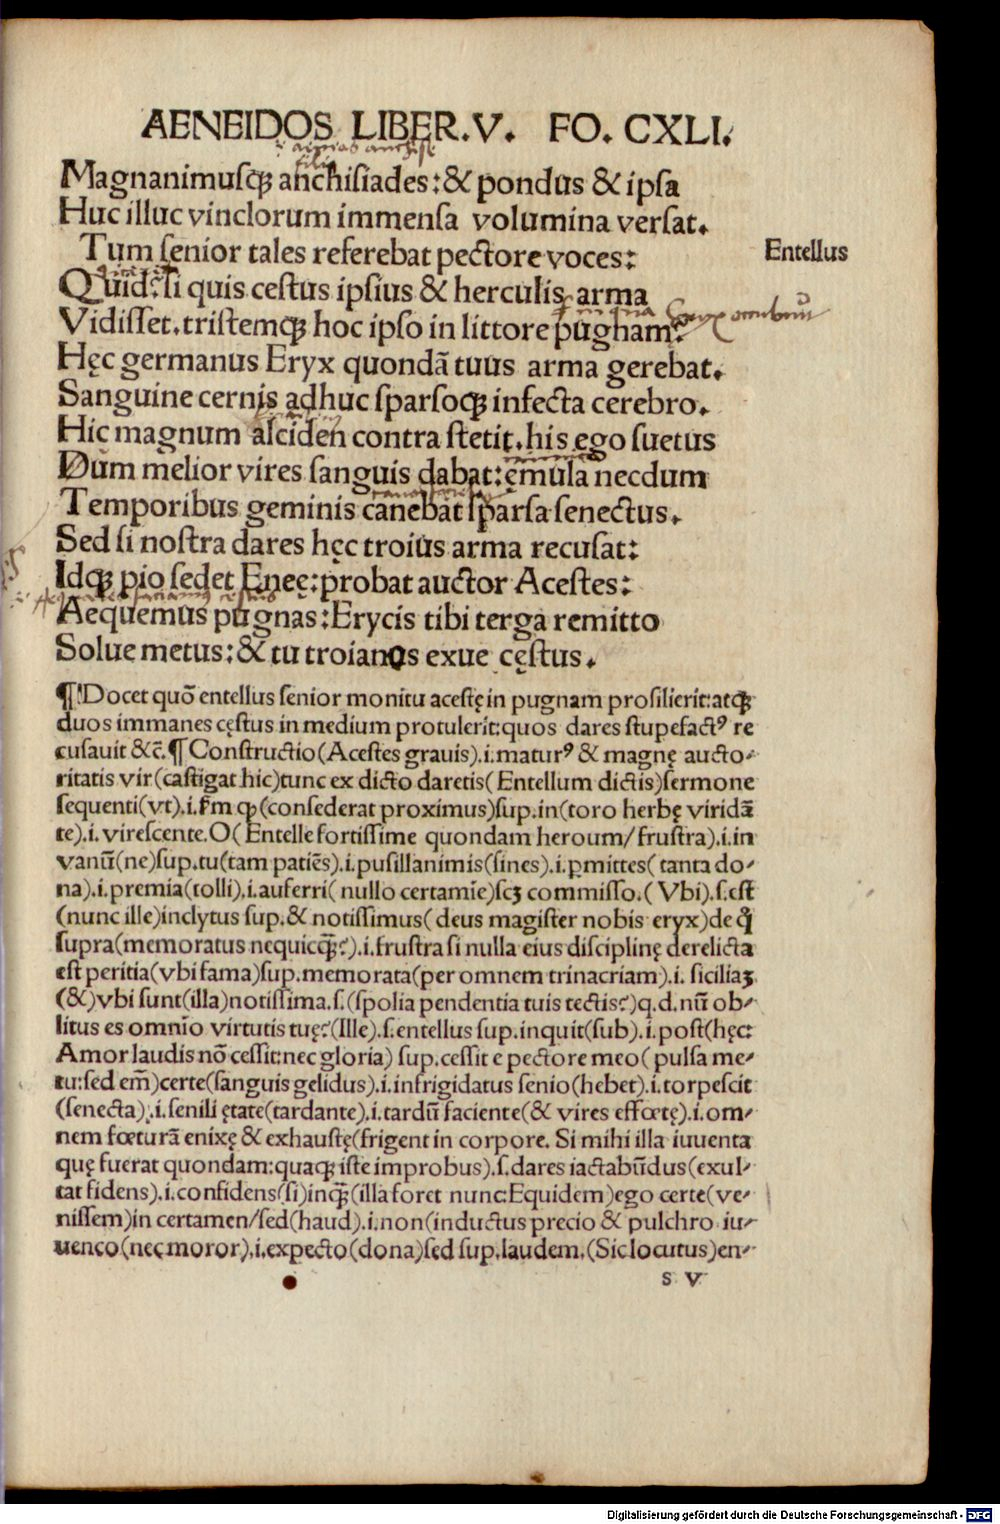 AENEIDOS LIBER.V. FO. CXLI.
Magnanimusqꝫ anchisiades:& pondus & ipsa
Huc illuc vinclorum immensa volumina versat.
Tum senior tales referebat pectore voces:
Entellus
Quid?si quis cestus ipsius & herculis arma
Vidisset.tristemqꝫ hoc ipso in littore pugnam?
Hęc germanus Eryx quondã tuus arma gerebat.
Sanguine cernis adhuc sparsoqꝫ infecta cerebro.
His magnum alciden contra stetit.his ego suetus
Dum melior vires sanguis dabat:ęmula necdum
Temporibus geminis canebat sparsa senectus.
Sed si nostra dares hęc troius arma recusat:
Idqꝫ pio sedet Eneę:probat auctor Acestes:
Aequemus pugnas:Erycis tibi terga remitto
Solue metus:& tu troianos exue cęstus.
¶Docet quõ entellus senior monitu acestę in pugnam prosilierit:atqꝫ
duos immanes cęstus in medium protulerit:quos dares stupefactꝰ re
cusauit &c̃.¶Constructio(Acestes grauis).i.maturꝰ & magnę aucto-
ritatis vir(castigat hic)tunc ex dicto daretis(Entellum dictis)sermone
sequenti(vt).i.f̃m ꝙ(consederat proximus)sup.in(toro herbę viridã
te).i.virescente.O(Entelle fortissime quondam heroum/frustra).i.in
vanũ(ne)sup.tu(tam patiẽs).i.pusillanimis(sines).i.ꝑmittes(tanta do-
na).i.premia(tolli).i.auferri(nullo certamĩe)scꝫ commisso.(Vbi).s.est
(nunc ille)inclytus sup.& notissimus(deus magister nobis eryx)de q̃
supra(memoratus nequicꝗ̃?).i.frustra si nulla eius disciplinę derelicta
est peritia(vbi fama)sup.memorata(per omnem trinacriam).i.siciliaꝫ
(&)vbi sunt(illa)notissima.s.(spolia pendentia tuis tectis?)q.d.nũ ob-
litus es omnĩo virtutis tuę?(Ille).s.entellus sup.inquit(sub).i.post(hęc:
Amor laudis nõ cessit:nec gloria)sup.cessit e pectore meo(pulsa me-
tu:sed em̃)certe(sanguis gelidus).i.infrigidatus senio(hebet).i.torpescit
(senecta).i.senili ętate(tardante).i.tardũ faciente(& vires effœtę).i.om-
nem fœturã enixę & exhaustę(frigent in corpore. Si mihi illa iuuenta
quę fuerat quondam:quaqꝫ iste improbus).s.dares iactabũdus(exul-
tat fidens).i.confidens(si)inꝗ̃(illa foret nunc:Equidem)ego certe(ve-
nissem)in certamen/sed(haud).i.non(inductus precio & pulchro iu-
uenco(nec moror).i.expecto(dona)sed sup.laudem.(Sic locutus)en-
s v
Digitalisierung gefördert durch die Deutsche Forschungsgemeinschaft - DFG